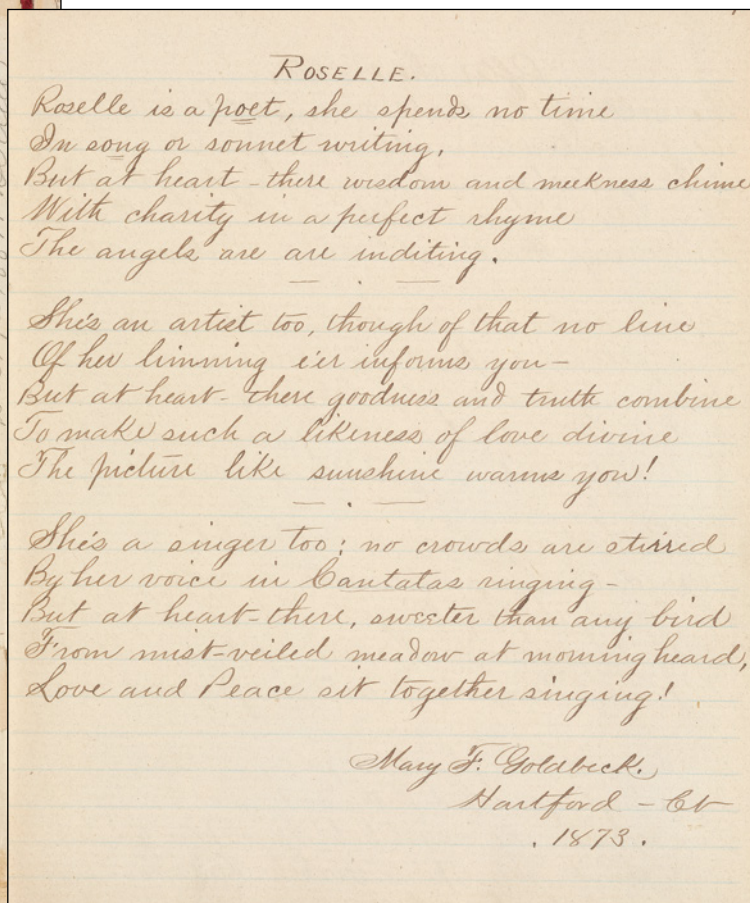 ROSELLE.
Roselle is a poet, she spends no time
In song or sonnet writing,
But at heart - there wisdom and meekness chime
With charity in a perfect rhyme
The angels are are inditing.
She's an artist too, though of that no line
Of her limning e'er informs you -
But at heart - there goodness and truth combine
To make such a likeness of love divine
The picture like sunshine warms you!
She's a singer too; no crowds are stirred
By her voice in Cantatas ringing -
But at heart - there, sweeter than any bird
From mist-veiled meadow at morning heard,
Love and Peace sit together singing!
Mary F. Goldbeck.
Hartford - Ct
. 1873 .